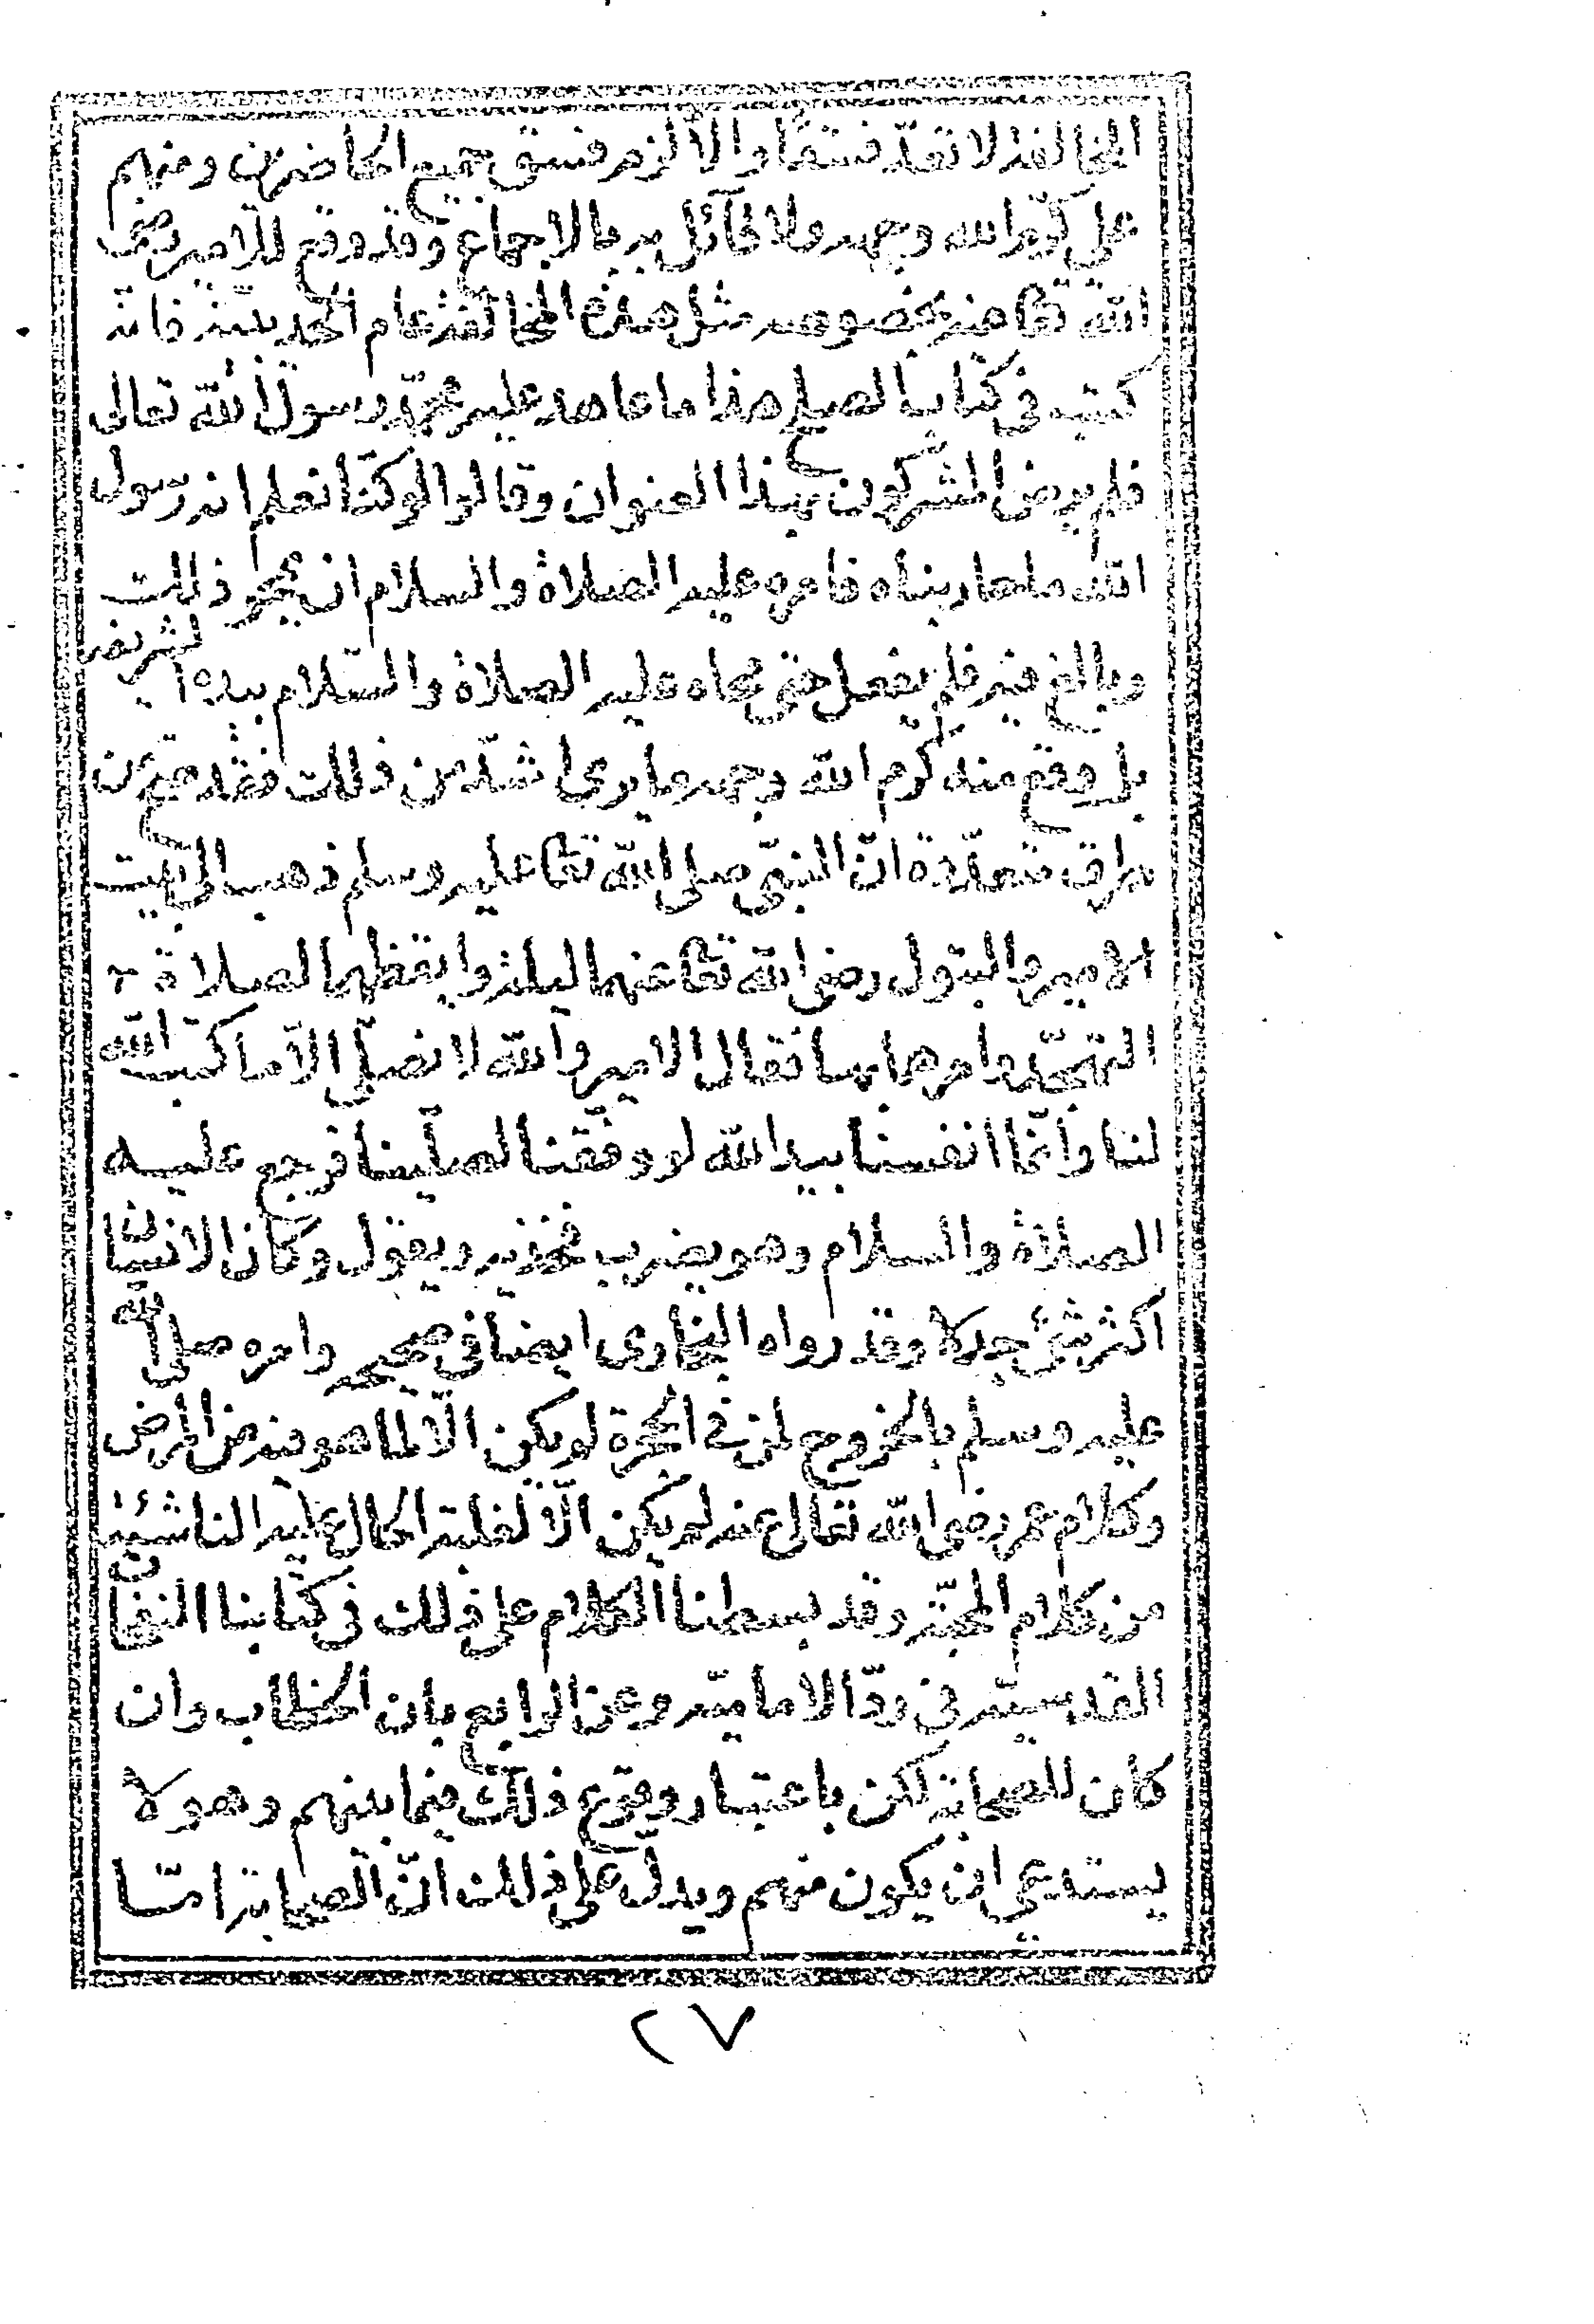 المخالفة لا تعدّ فسقًا والّا لزم فسق جميع الحاضرين ومنهم
علي كرّم الله وجهه ولا قآئل به بالاجماع وقد وقع للامير رضى
الله تعا عنه بخصوصه مثل هذه المخالفة عام الحديبيّة فانّه
كتب في كتاب الصلح هذا ما عاهد عليه محمّد رسول الله تعالى
فلم يرض المشركون بهذا العنوان وقالوا لو كنّا نعلم انه رسول
الله ما حاربناه فامره عليه الصلاة والسلام ان يمحو ذلك
وبالغ فيه فلم يفعل حتى محاه عليه الصلاة والسّلام بيده الشريفة
بل وقع منه كرّم الله وجهه ما يرى اشدّ من ذلك فقد صحّ من
طرق متعدّدة انّ النبيّ صلى الله تعا عليه وسلم ذهب الى بيت
الامير والبتول رضى الله تعا عنهما ليلة وايقظهما لصلاة
التهجّد وامرهما بها فقال الامير والله لا نصلّي الّا ما كتب الله
لنا وانّما انفسنا بيد الله لو وفّقنا لصلّينا فرجع عليه
الصلاة والسلام وهو يضرب فخذيه ويقول وكان الانسان
اكثر شئ جدلا وقد رواه البخارى ايضا في صحيحه وامره صلى الله
عليه وسلم بالخروج لمن في الحجرة لم يكن الّا لما هو فيه من المرض
وكلام عمر رضى الله تعالى عنه لم يكن الّا لغلبة الحال عليه الناشئة
من كلام المحبّة وقد بسطنا الكلام على ذلك في كتابنا النفحات
القدسيّة في ردّ الاماميّة وعن الرابع بان الخطاب وان
كان للصحابة لكن باعتبار وقوع ذلك فيما بينهم وهو لا
يستدعي ان يكون منهم ويدلّ على ذلك انّ الصحابة امّا
٢٧